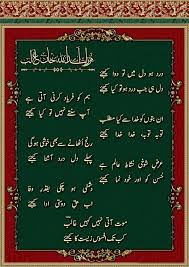 اسد اللہ خان غالب
درد ہو دل میں تو دوا کیجئے
دل ہی جب درد ہو تو کیا کیجئے
ہم کو فریاد کرنی آتی ہے
آپ سنتے نہیں تو کیا کیجئے
ان بتوں کو خدا سے کیا مطلب
توبہ توبہ خدا خدا کیجئے
رنج اٹھانے سے بھی خوشی ہوگی
پہلے دل درد آشنا کیجئے
عرض شوخی نشاط عالم ہے
حسن کو اور خود نما کیجئے
دشمنی ہو چکی بقدر وفا
اب حق دوستی ادا کیجئے
موت آتی نہیں کہیں غالب
کب تک افسوس زیست کا کیجئے